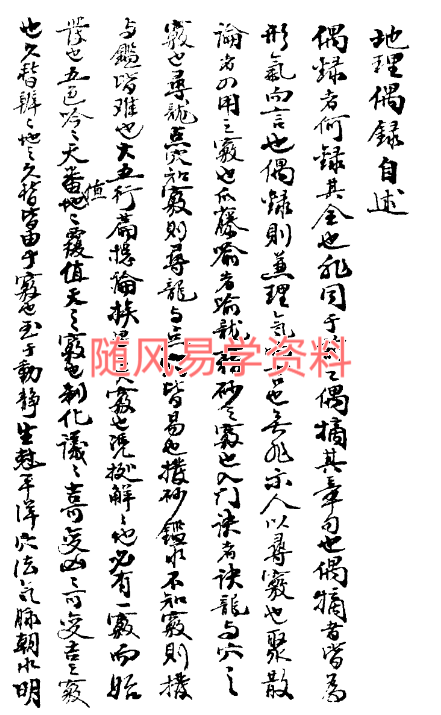 地理偶録自述
偶録者何録其全也非同于偶摘其章句也偶摘者皆為
形氣而言也偶録則兼理氣也無非示人以尋竅也聚散
論者切用之竅也瓜藤喻者喻龍穴砂之竅也入门诀者诀龍与穴之
竅也尋龍点穴知竅則尋龍与点穴皆易也撥砂鑑水不知竅則撥
与鑑皆难也大五行篇穏論挨入竅也既解之也必有一竅而始
也五吟之天番地之覆值天之竅也制化議之吉可变凶之可变吉之竅
值
也久暂辨之地之久暂皆由于竅也至于動静生尅平洋穴法气脉朝水明
随风易学资料